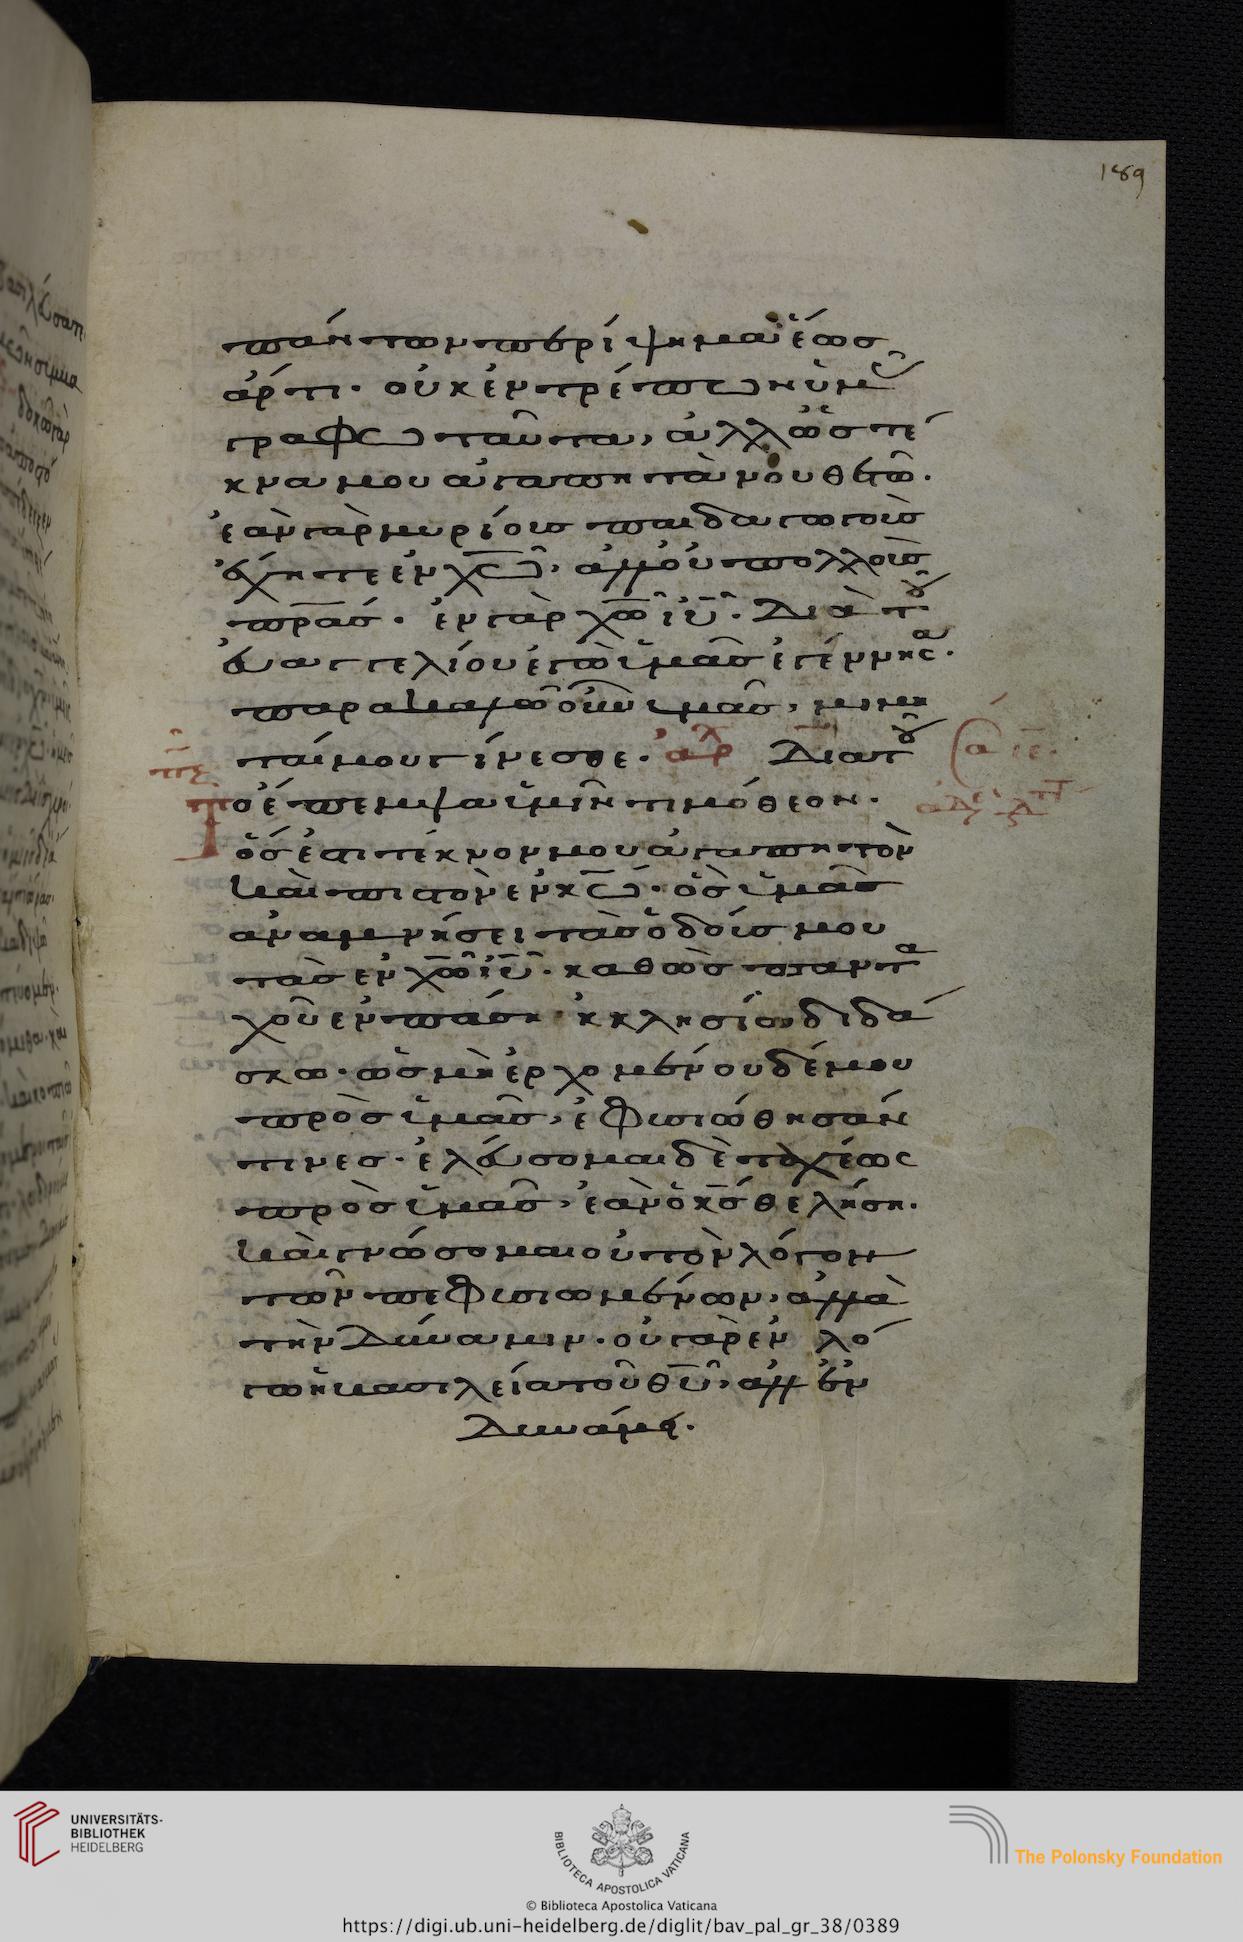 189
πάντων περίψημα ἕως
ἄρτι· οὐκ ἐντρέπων ὑμᾶς
γράφω ταῦτα, ἀλλ' ὡς τέ
κνα μου ἀγαπητὰ νουθετῶ·
ἐὰν γὰρ μυρίους παιδαγωγοὺς
ἔχητε ἐν χω, ἀλλ' οὐ πολλοὺς
πρας· ἐν γὰρ χω ιυ· διὰ τοῦ
εὐαγγελίου ἐγὼ ὑμᾶς ἐγέννησα·
παρακαλῶ οὖν ὑμᾶς, μιμη
ταί μου γίνεσθε· ἀρ Διατοῦ
το ἔπεμψα ὑμῖν τιμόθεον·
ὅς ἐστι τέκνον μου ἀγαπητὸν
καὶ πιστὸν ἐν κω· ὃς ὑμᾶς
ἀναμνήσει τὰς ὁδούς μου
τὰς ἐν χω ιυ· καθὼς παντα
χοῦ ἐν πάσῃ ἐκκλησία διδά
σκω· ὡς μὴ ἐρχομένου δέ μου
πρὸς ὑμᾶς, ἐφυσιώθησάν
τινες· ἐλεύσομαι δὲ ταχέως
πρὸς ὑμᾶς, ἐὰν ὁ κς θελήση·
καὶ γνώσομαι οὐ τὸν λόγον
τῶν πεφυσιωμένων, ἀλλὰ
τὴν δύναμιν· οὐ γὰρ ἐν λό
γω ἡ βασιλεία τοῦ θυ, ἀλλ' ἐν
δυνάμει·
UNIVERSITÄTS-
BIBLIOTHEK
HEIDELBERG
BIBLIOTECA APOSTOLICA VATICANA
The Polonsky Foundation
© Biblioteca Apostolica Vaticana
https://digi.ub.uni-heidelberg.de/diglit/bav_pal_gr_38/0389